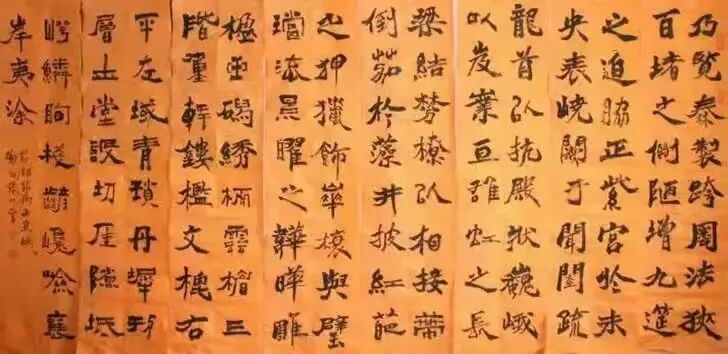 乃覽秦製跨周法狹
百堵之側陋增九筵
之迫脇正紫宮於未
央表嶢闕于閶闔疏
龍首以抗殿狀巍峨
以岌嶪亘雄虹之長
梁結棼橑以相接蔕
倒茄於藻井披紅葩
之狎獵飾華榱與璧
璫流景曜之韡曄雕
楹玉磶繡栭雲楣三
階重軒鏤檻文㮰右
平左墄青瑣丹墀刊
層平堂設切厓隒坻
崿鱗眴棧齴巉嶮襄
岸夷塗